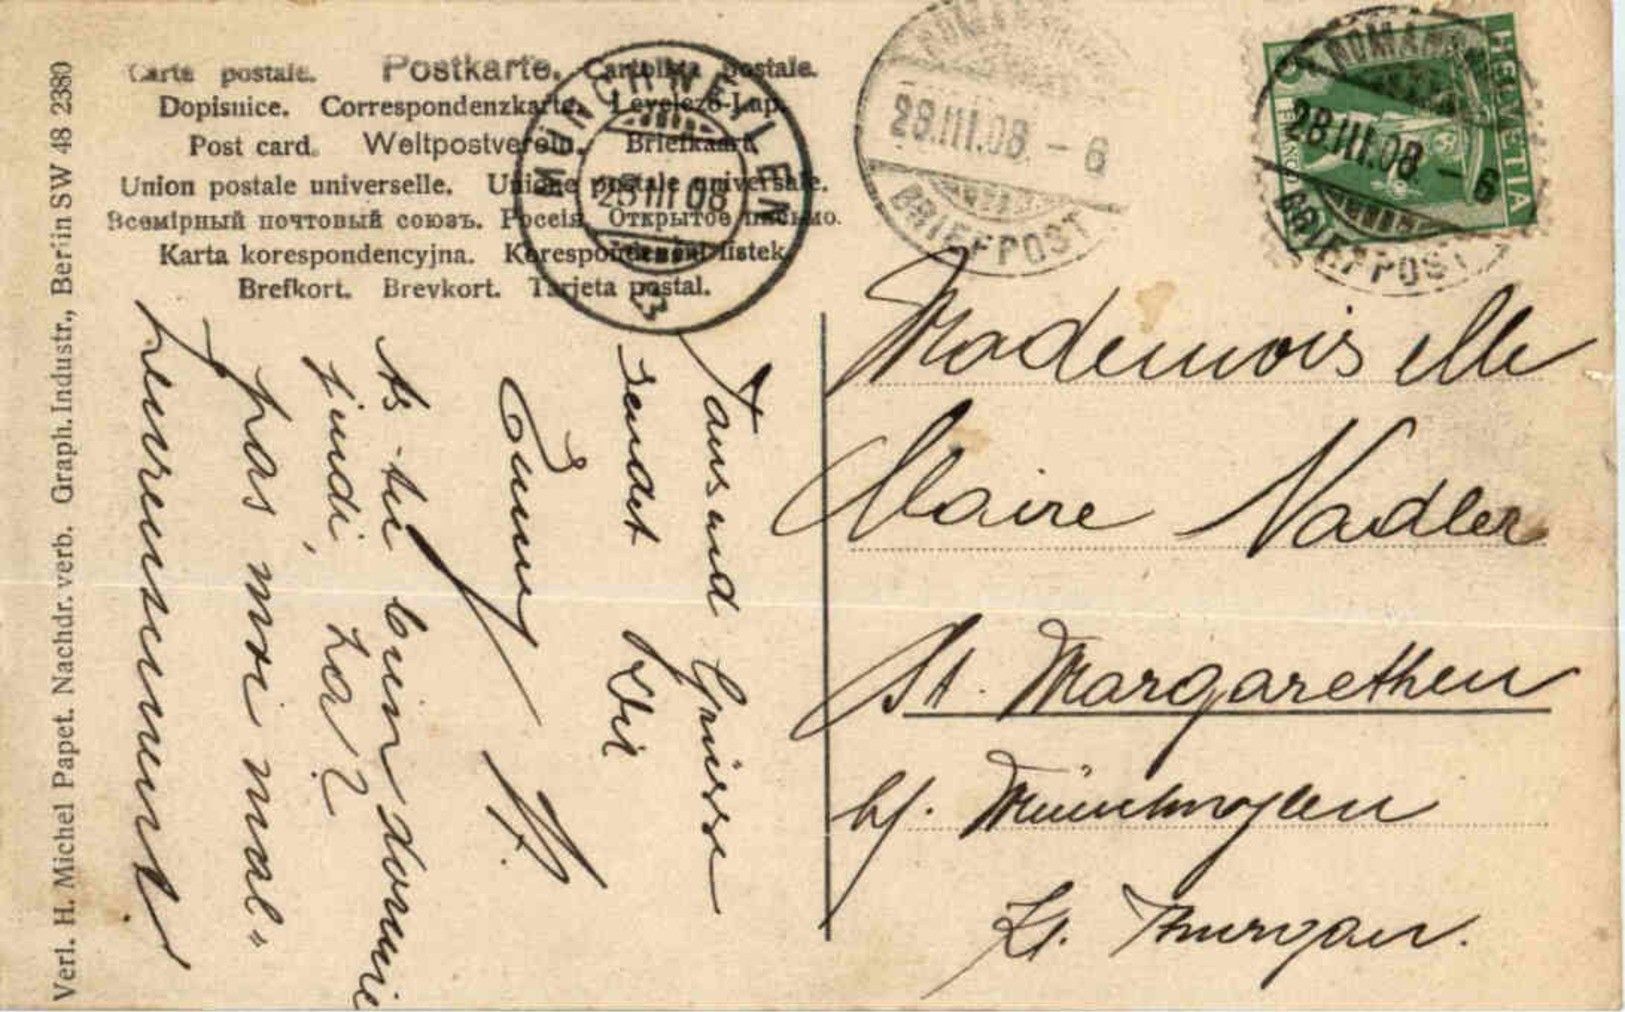 Carte postale. Postkarte. Cartolina postale.
Dopisnice. Correspondenzkarte. Levelező-Lap.
Post card. Weltpostverein. Briefkaart.
Union postale universelle. Unione postale universale.
Всемірный почтовый союзъ. Россія. Открытое письмо.
Karta korespondencyjna. Korespondenční listek.
Brefkort. Brevkort. Tarjeta postal.
Verl. H. Michel Papet. Nachdr. verb. Graph. Industr., Berlin SW 48 2380
MÜNCHWEILEN
28 III 08
ROMANSHORN
28.III.08. - 6
BRIEFPOST
ROMANSHORN
28.III.08. - 6
BRIEFPOST
HELVETIA
5
Mademoiselle
Claire Nadler
St. Margarethen
bf. Münchwylen
Kt. Thurgau.
Tausend Grüsse
sendet Dir
Emmy
As-tu bien dormie
jeudi,
pas moi mal"
heureusement